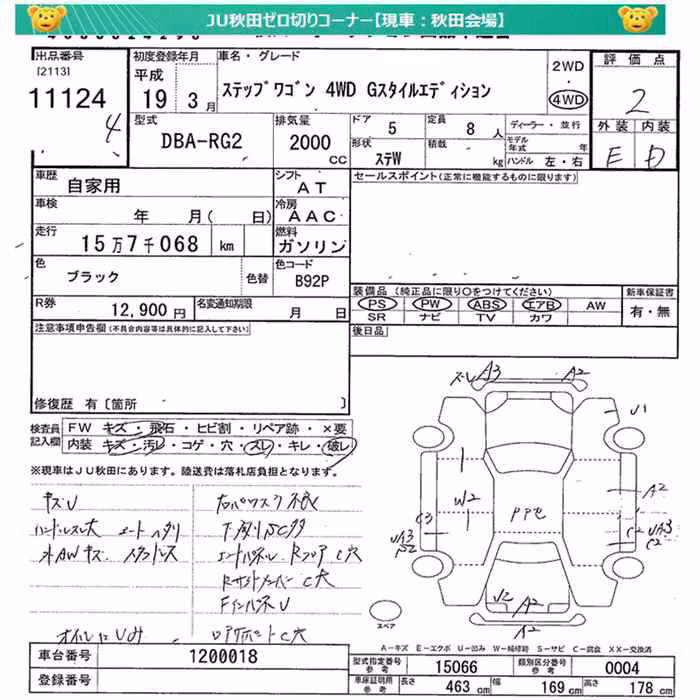 JU秋田ゼロ切りコーナー【現車：秋田会場】
出品番号
[2113]
11124
4
初度登録年月
平成
19 3月
車名・グレード
ステップワゴン 4WD Gスタイルエディション
2WD
4WD
評価点
2
外装 内装
E D
型式
DBA-RG2
排気量
2000
CC
ドア 5
定員 8 人
ディーラー・並行
モデル年式 年
形状 ステW
積載 kg
ハンドル 左・右
車歴
自家用
シフト
AT
セールスポイント(正常に機能するものに限ります)
車検
年 月( 日)
冷房
AAC
走行
15万7千068 km
燃料
ガソリン
色
ブラック
色替
色コード
B92P
R券
12,900円
名変通知期限
月 日
装備品(純正品に限り○をつけてください)
PS PW ABS エアB AW
SR ナビ TV カワ
新車保証書
有・無
後日品
注意事項申告欄(不具合内容等は具体的に記入して下さい)
修復歴 有[箇所 ]
検査員
記入欄
FW キズ・飛石・ヒビ割・リペア跡・×要
内装 キズ・汚レ・コゲ・穴・スレ・キレ・破レ
※現車はJU秋田にあります。陸送費は落札店負担となります。
キズU
ハンドルスレ大 シートヘタリ
外AWキズ スタッドレス
下廻りSCダ
A3 A2
U1
A2
W2
C3
PPセ
C2
UA3
C2
U2
A2
A2
スペア
A-キズ E-エクボ U-凹み W-補修跡 S-サビ C-腐食 XX-交換済
車台番号
1200018
登録番号
型式指定番号
参考
15066
類別区分番号
参考
0004
車庫証明用
参考
長さ 463 cm 幅 169 cm 高さ 178 cm